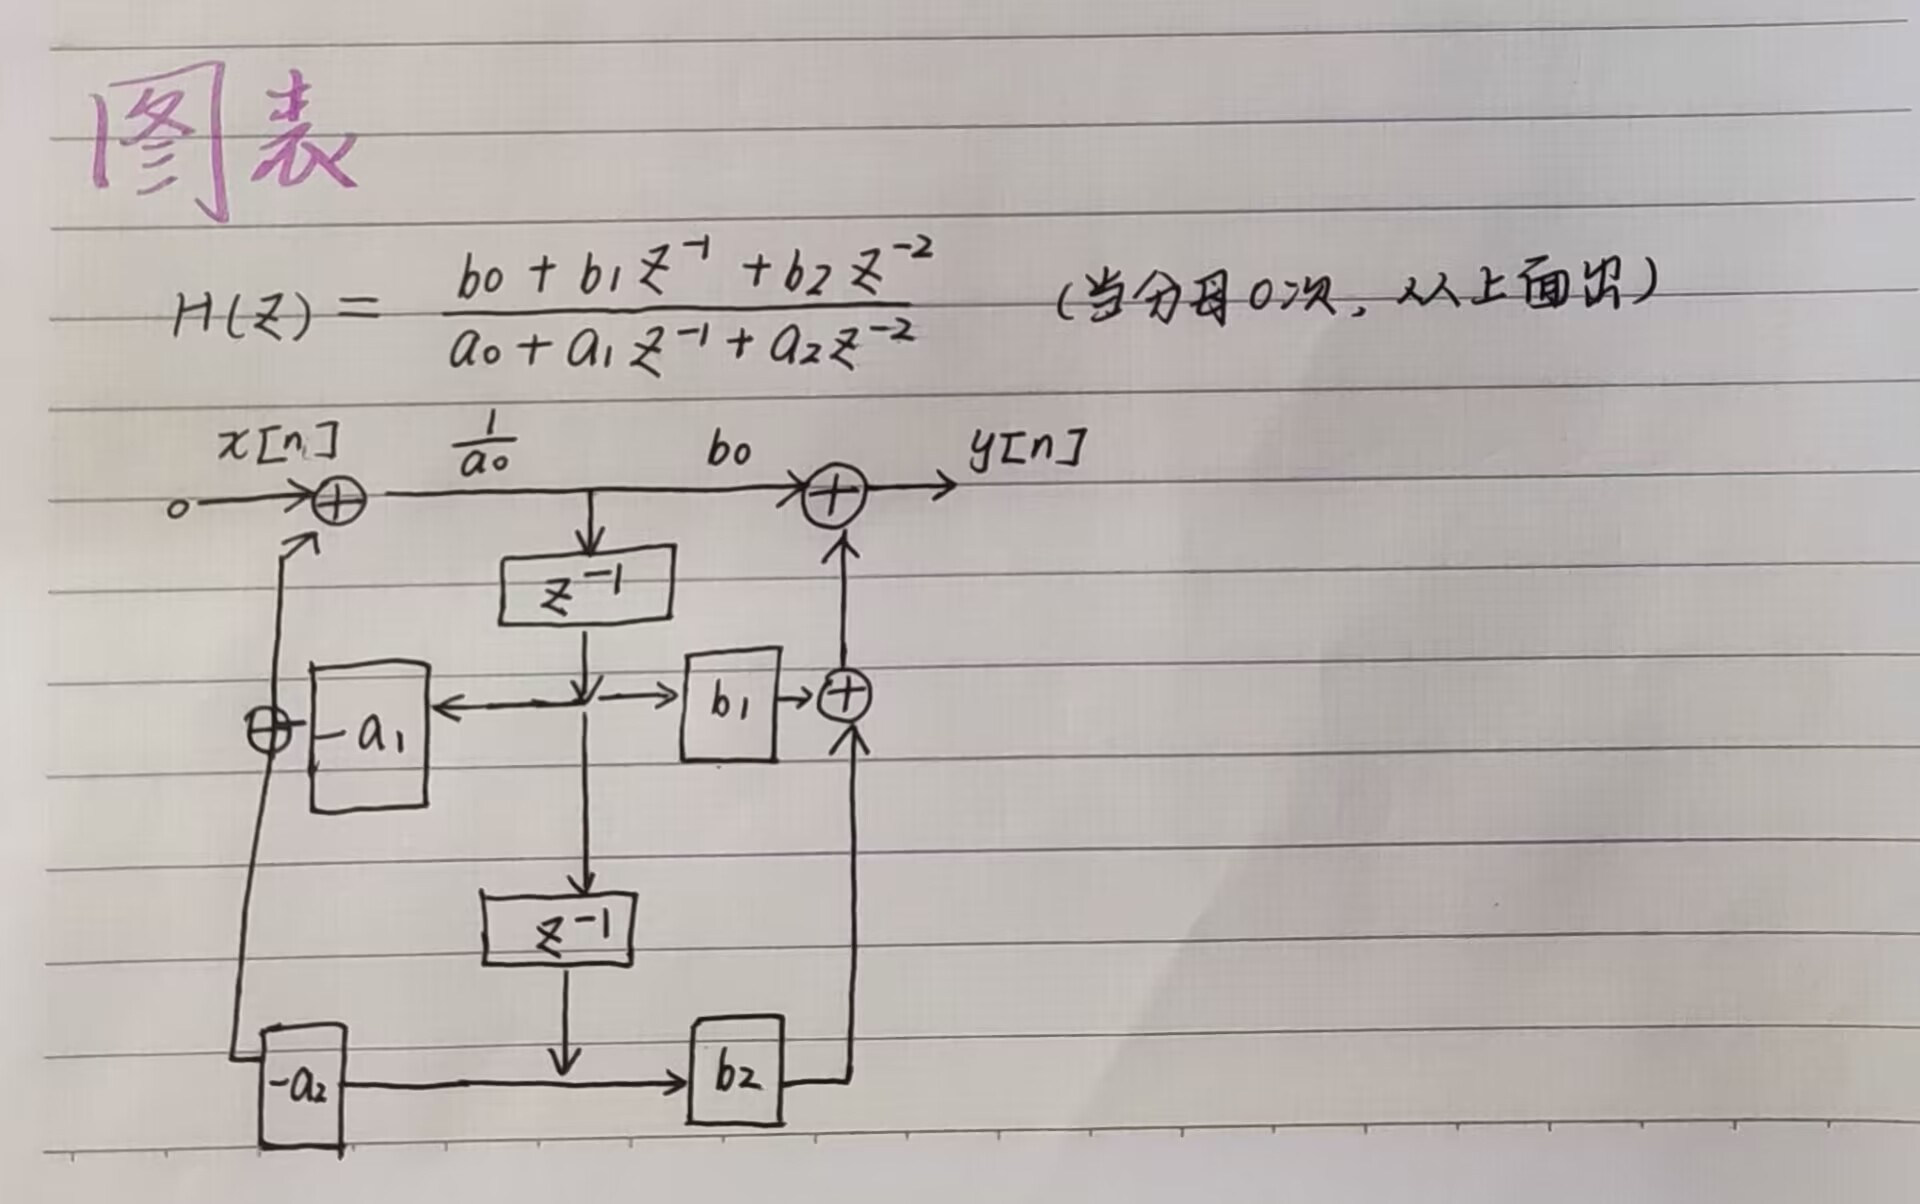 图表
H(Z) = \frac{b_0 + b_1 Z^{-1} + b_2 Z^{-2}}{a_0 + a_1 Z^{-1} + a_2 Z^{-2}} (当分母0次，从上面出)
x[n] \frac{1}{a_0} b_0 y[n]
Z^{-1}
-a_1 b_1
Z^{-1}
-a_2 b_2